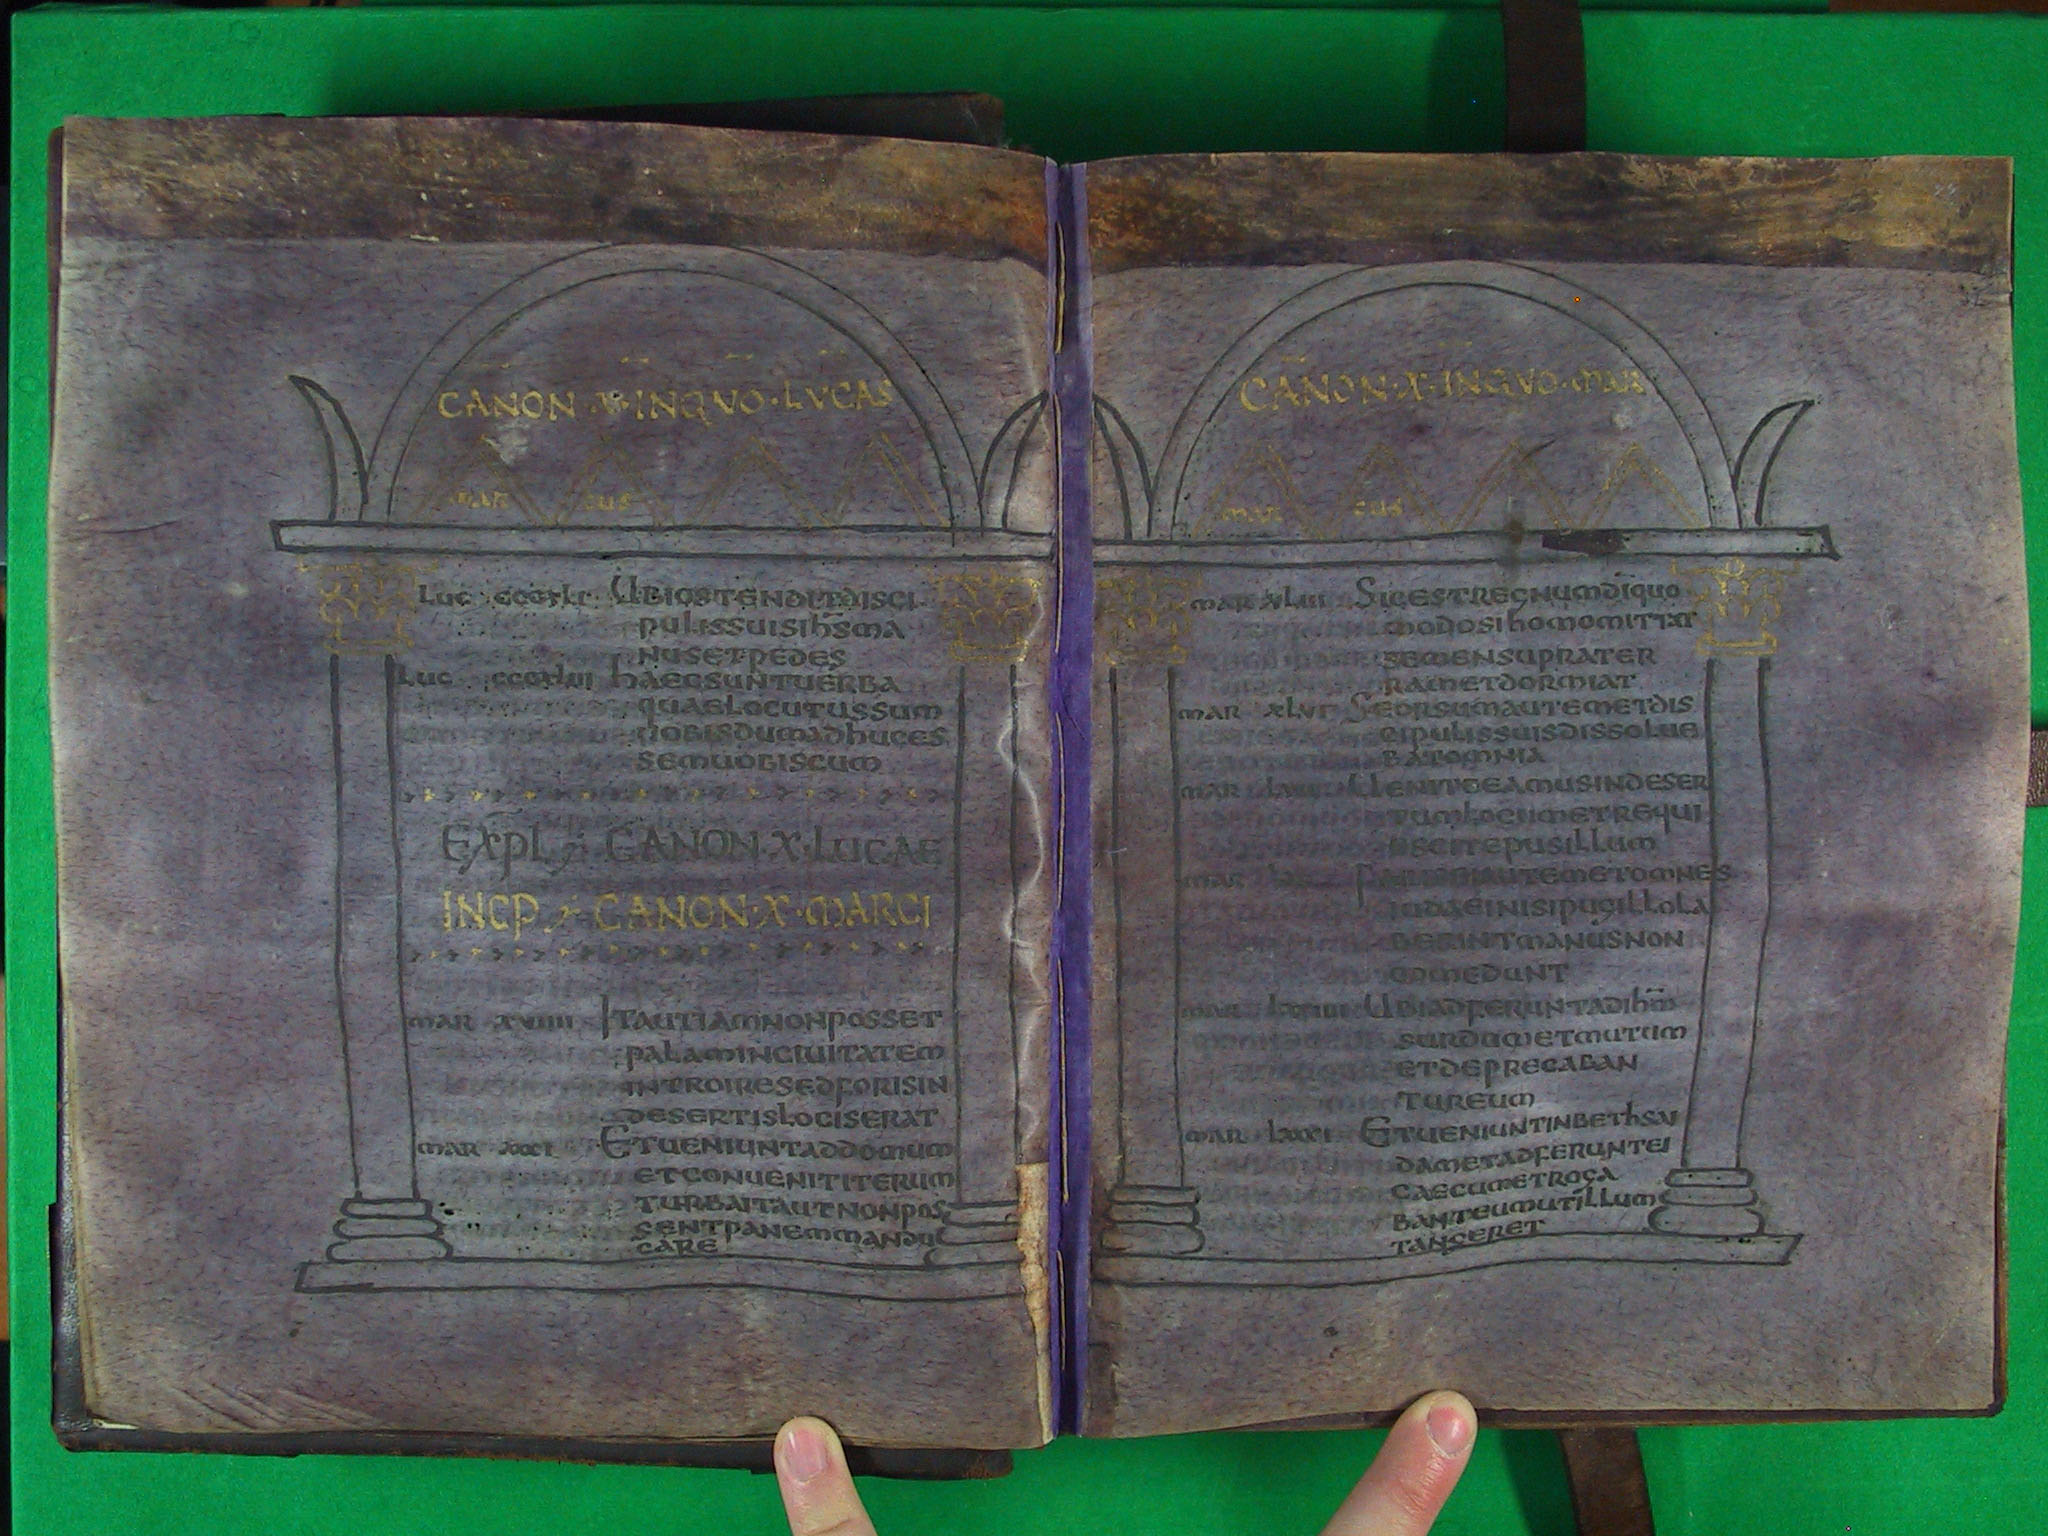 CANON · X · IN QUO · LUCAS
MAR CUS
LUC CCCXLI UBI OSTENDIT DISCI
PULIS SUIS IHS MA
NUS ET PEDES
LUC CCCXLIII HAEC SUNT UERBA
QUAE LOCUTUS SUM
UOBIS DUM ADHUC ES
SEM UOBISCUM
EXPL CANON · X · LUCAE
INCP CANON · X · MARCI
MAR XVIIII ITA UT IAM NON POSSET
PALAM IN CIUITATEM
INTROIRE SED FORIS IN
DESERTIS LOCIS ERAT
MAR XXXI ET UENIUNT AD DOMUM
ET CONUENIT ITERUM
TURBA ITA UT NON POS
SENT PANEM MANDU
CARE
CANON · X · IN QUO · MAR
MAR CUS
MAR XLIII SIC EST REGNUM DI QUO
MODO SI HOMO MITTAT
SEMEN SUPRA TER
RAM ET DORMIAT
MAR XLVI SEORSUM AUTEM ET DIS
CIPULIS SUIS DISSOLUE
BAT OMNIA
MAR UENITE EAMUS IN DESER
TUM LOCUM ET REQUI
ESCITE PUSILLUM
MAR AUTEM ET OMNES
IUDAEI NISI PUGILLO LA
BERINT MANUS NON
COMEDUNT
MAR LXXIIII UBI ADFERUNT AD IHM
SURDUM ET MUTUM
ET DEPRECABAN
TUR EUM
MAR LXXXI ET UENIUNT IN BETHSAI
DAM ET ADFERUNT EI
CAECUM ET ROGA
BANT EUM UT ILLUM
TANGERET